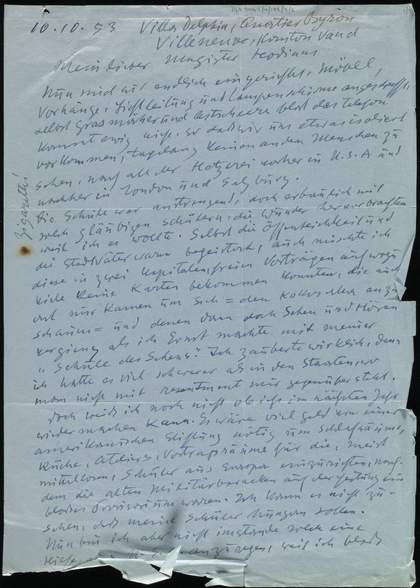 10.10.53 Villa Delphin, Quartier Byron
Villeneuve, Kanton Vaud
Mein lieber Magister Ludimus
Nun sind wir endlich eingerichtet, Möbel,
Vorhänge, Lichtleitung und Lampenschirme angeschafft,
selbst Grasmäher und Astscheere bloss das Telefon
kommt ewig nicht. So dass wir uns etwas isoliert
vorkommen, tagelang keinen andern Menschen zu
sehen, nach all der Hetzerei vorher in U.S.A und
nachher in London und Salzburg.
Die Schule war anstrengend, doch erbaulich mit
solch gläubigen Schülern, die Wunder hervorbrachten
weil ich es wollte. Selbst die Öffentlichkeit und
die Stadtväter waren begeistert, auch musste ich
diese in zwei Kapiteln freien Vorträgen aufwozu
viele keine Karten bekommen konnten, die auch
erst nur kamen um sich = den Kokoschka anzu
schauen = und denen dann doch Sehen und Hören
vergieng als ich Ernst machte mit meiner
"Schule des Sehens". Ich zauberte wirklich, denn
ich hatte es viel schwerer als in den Staaten wo
man nicht mit resentiment mir gegenüber steht.
Doch weiss ich noch nicht ob ich im nächsten Jahr
wieder machen kann. Es wäre viel Geld von einer
amerikanischen Stiftung nötig um Schlafräume,
Küche, Ateliers, Vortragsräume für die, meist
mittellosen, Schüler aus Europa einzurichten, nach
dem die alten Militärbaracken auf der Festung ein
blosses Provisorium waren. Ich kann es nicht zu-
sehen, dass meine Schüler hungern sollen.
Nun bin ich aber nicht imstande solch eine
weil ich bloss
Zigarette!